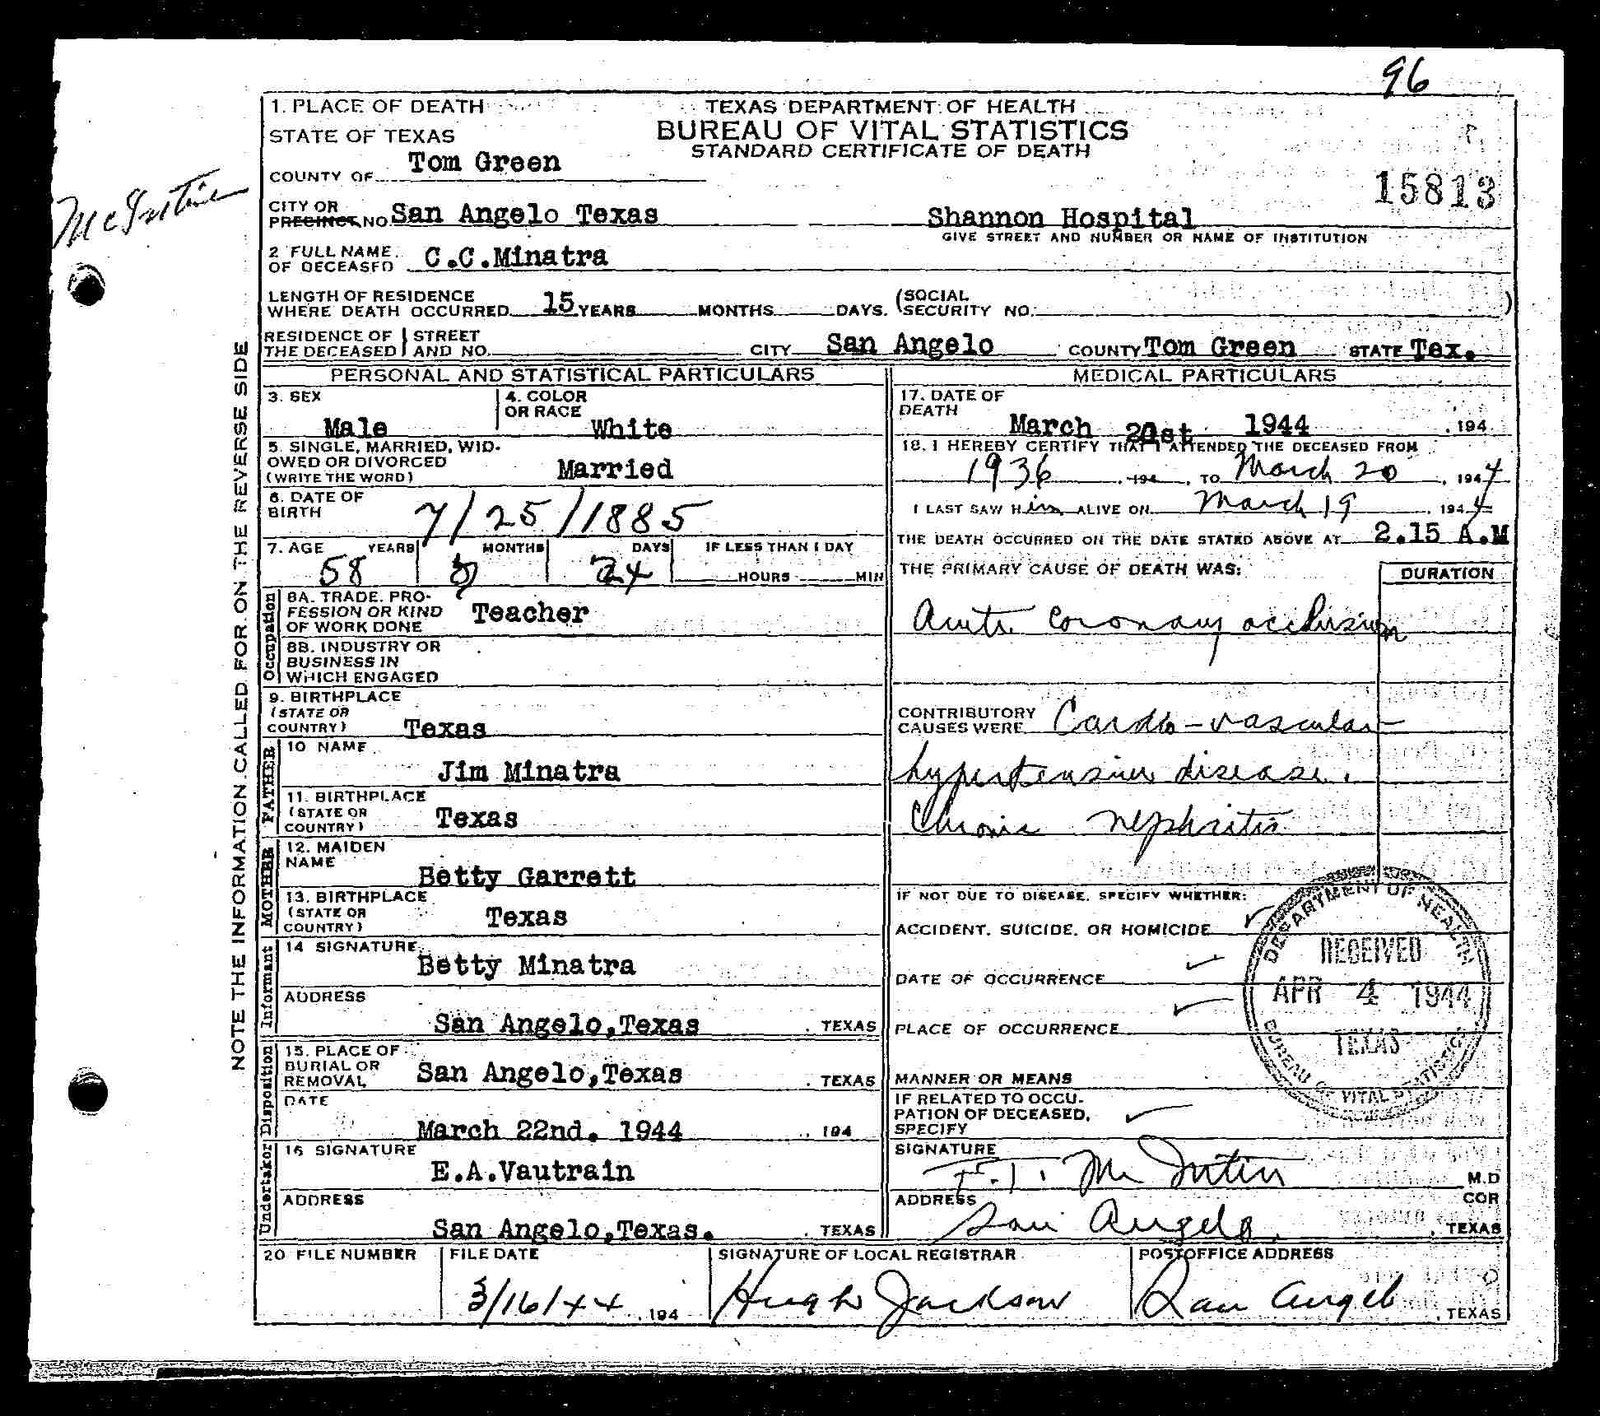 96
1. PLACE OF DEATH
STATE OF TEXAS
COUNTY OF Tom Green
TEXAS DEPARTMENT OF HEALTH
BUREAU OF VITAL STATISTICS
STANDARD CERTIFICATE OF DEATH
15813
McIntire
CITY OR
PRECINCT NO. San Angelo Texas
Shannon Hospital
GIVE STREET AND NUMBER OR NAME OF INSTITUTION
2 FULL NAME
OF DECEASED C.C.Minatra
LENGTH OF RESIDENCE
WHERE DEATH OCCURRED 15 YEARS MONTHS DAYS. (SOCIAL SECURITY NO. )
RESIDENCE OF THE DECEASED STREET AND NO. CITY San Angelo COUNTY Tom Green STATE Tex.
NOTE THE INFORMATION CALLED FOR ON THE REVERSE SIDE
PERSONAL AND STATISTICAL PARTICULARS
3. SEX
Male
4. COLOR
OR RACE
White
5. SINGLE, MARRIED, WID-
OWED OR DIVORCED
(WRITE THE WORD)
Married
6. DATE OF
BIRTH 7/25/1885
7. AGE YEARS MONTHS DAYS IF LESS THAN 1 DAY
58 24 HOURS MIN
Occupation
8A. TRADE, PRO-
FESSION OR KIND
OF WORK DONE
Teacher
8B. INDUSTRY OR
BUSINESS IN
WHICH ENGAGED
9. BIRTHPLACE
(STATE OR
COUNTRY) Texas
FATHER
10 NAME
Jim Minatra
11. BIRTHPLACE
(STATE OR
COUNTRY) Texas
MOTHER
12. MAIDEN
NAME
Betty Garrett
13. BIRTHPLACE
(STATE OR
COUNTRY) Texas
Informant
14 SIGNATURE
Betty Minatra
ADDRESS
San Angelo,Texas . TEXAS
Disposition
15. PLACE OF
BURIAL OR
REMOVAL San Angelo,Texas . TEXAS
DATE
March 22nd. 1944 . 194
Undertaker
16 SIGNATURE
E.A.Vautrain
ADDRESS
San Angelo,Texas. . TEXAS
MEDICAL PARTICULARS
17. DATE OF
DEATH
March 1944 . 194
18. I HEREBY CERTIFY THAT I ATTENDED THE DECEASED FROM
1936 . 194 , TO March 20 , 1944
I LAST SAW Him ALIVE ON March 19 , 1944
THE DEATH OCCURRED ON THE DATE STATED ABOVE AT 2.15 A.M
THE PRIMARY CAUSE OF DEATH WAS:
DURATION
Acute coronary occlusion
CONTRIBUTORY
CAUSES WERE Cardio-vascular
hypertensive disease.
Chronic nephritis
IF NOT DUE TO DISEASE, SPECIFY WHETHER:
ACCIDENT, SUICIDE, OR HOMICIDE
DATE OF OCCURRENCE
PLACE OF OCCURRENCE
MANNER OR MEANS
IF RELATED TO OCCU-
PATION OF DECEASED,
SPECIFY
DEPARTMENT OF HEALTH
RECEIVED
APR 4 1944
TEXAS
BUREAU OF VITAL STATISTICS
SIGNATURE
F.T. McIntire M.D
ADDRESS COR
San Angelo , TEXAS
20 FILE NUMBER
FILE DATE
3/16/44 , 194
SIGNATURE OF LOCAL REGISTRAR
Hugh Jackson
POSTOFFICE ADDRESS
San Angelo , TEXAS